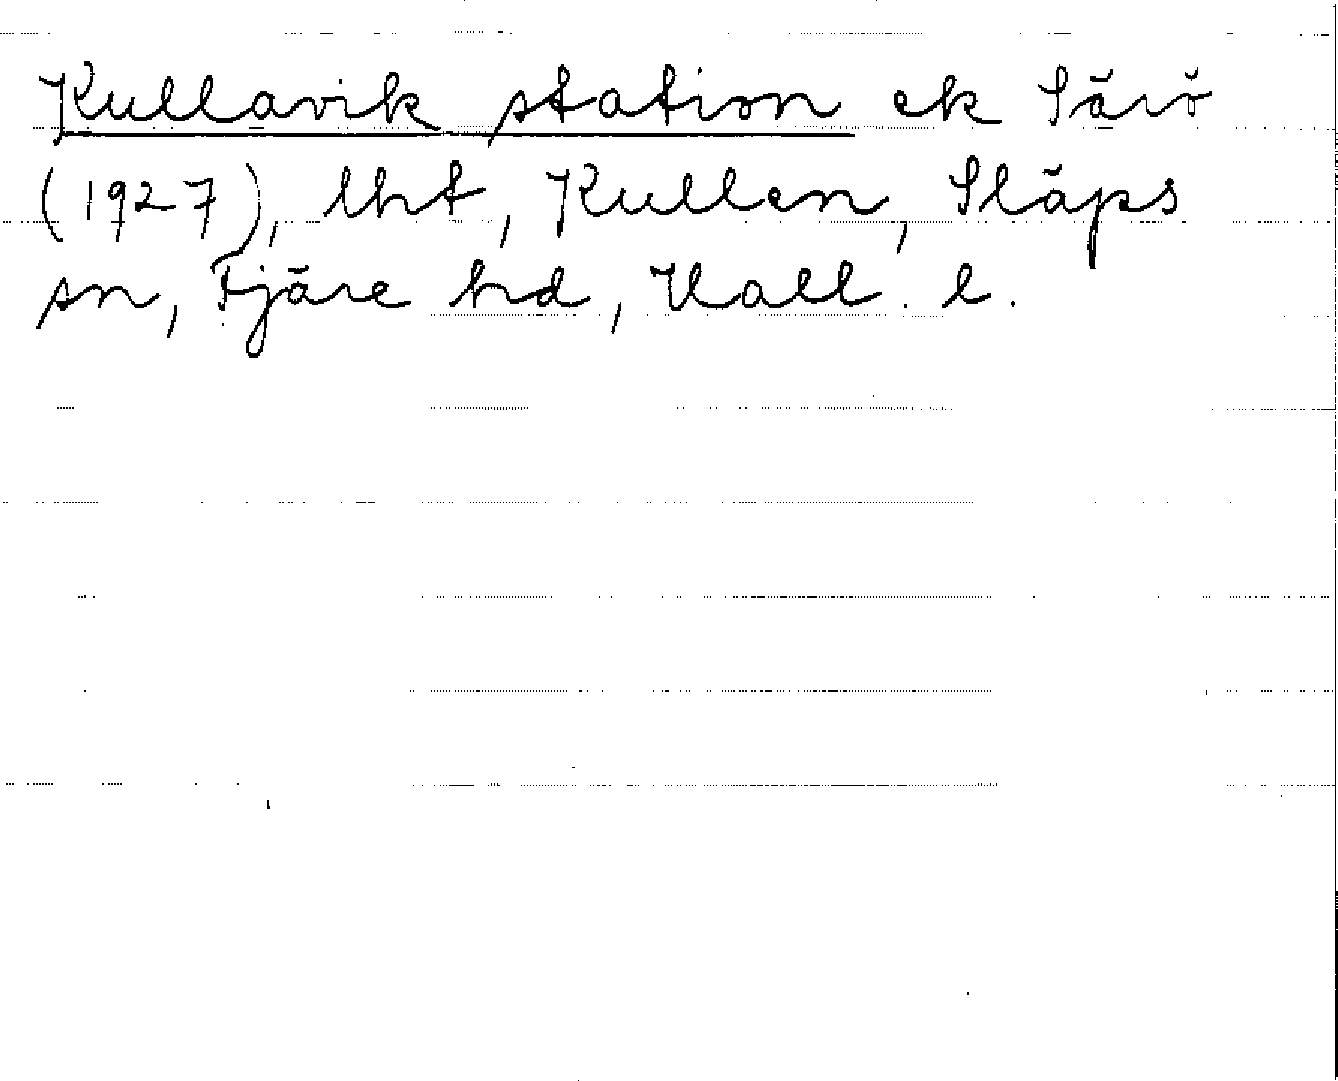 Kullavik station ek Särö
(1927), lht, Kullen, Släps
sn, Fjäre hd, Hall. l.